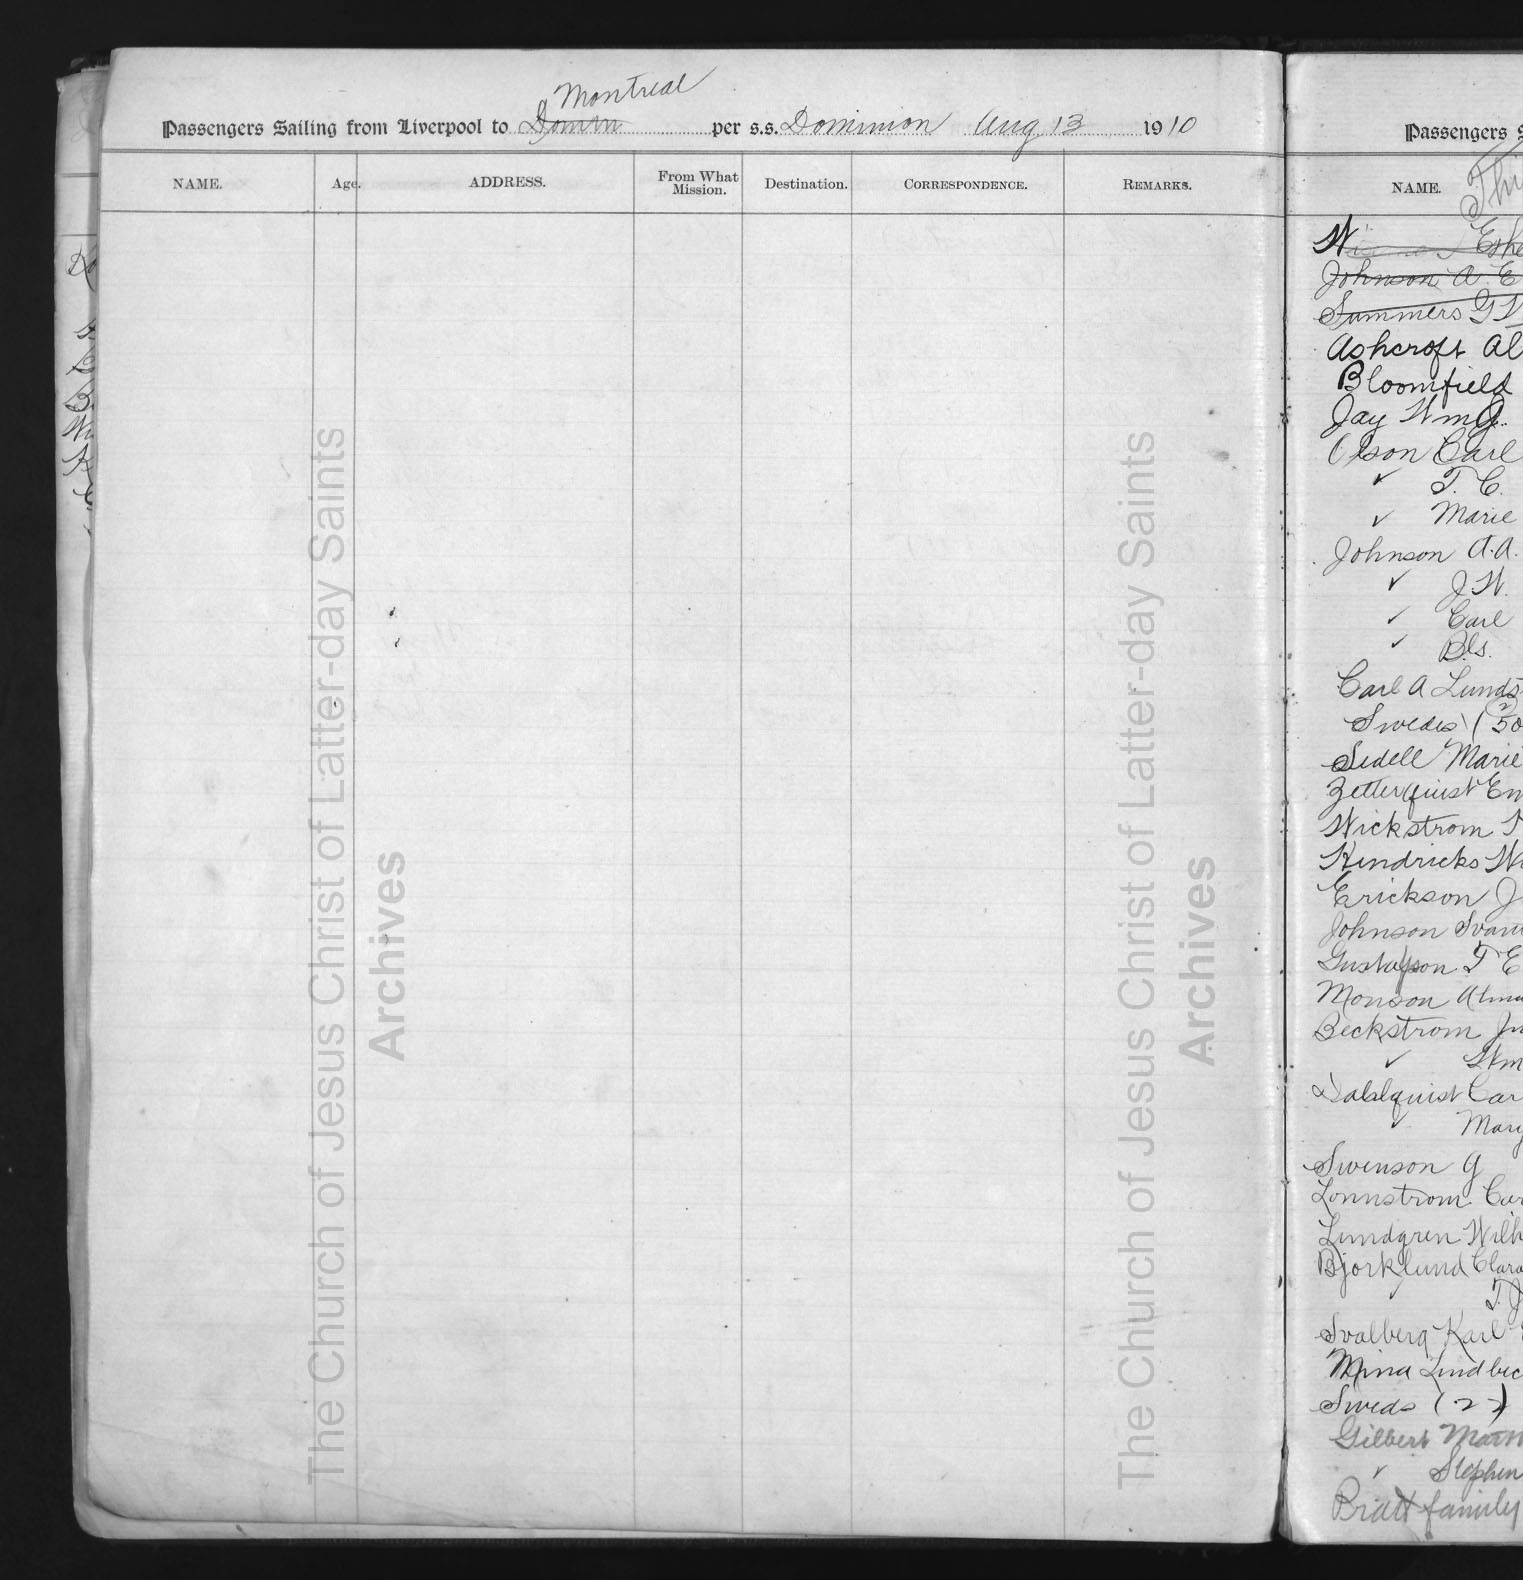 Montreal
Passengers Sailing from Liverpool to per s.s. Dominion Aug 13 1910
NAME. Age. ADDRESS. From What Mission. Destination. CORRESPONDENCE. REMARKS.
The Church of Jesus Christ of Latter-day Saints
Archives
The Church of Jesus Christ of Latter-day Saints
Archives
Passengers
NAME.
Johnson A. E
Summers G
Ashcroft Al
Bloomfield
Jay Wm G.
Olson Carl
✓ T. C.
✓ Marie
Johnson A. A.
✓ J. W.
✓ Carl
✓ Els.
Carl A Lunds
Swedes (50
Sedell Marie
Zetterquist Em
Wickstrom
Kendricks
Erickson J
Johnson
Gustafson T E
Monson Alma
Beckstrom
✓ Wm
Dahlquist Car
✓ Mary
Swenson G
Lonnstrom Car
Lundgren Wilh
Bjorklund Clara
T. J
Svalberg Karl
Mina Lindbec
Sweds (22)
Gilbert
✓ Stephen
Pratt family